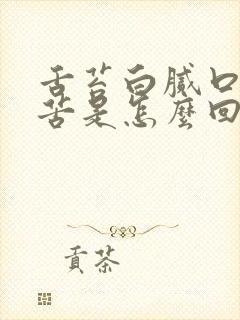 舌苔白腻口
苦是怎麼回
貢茶